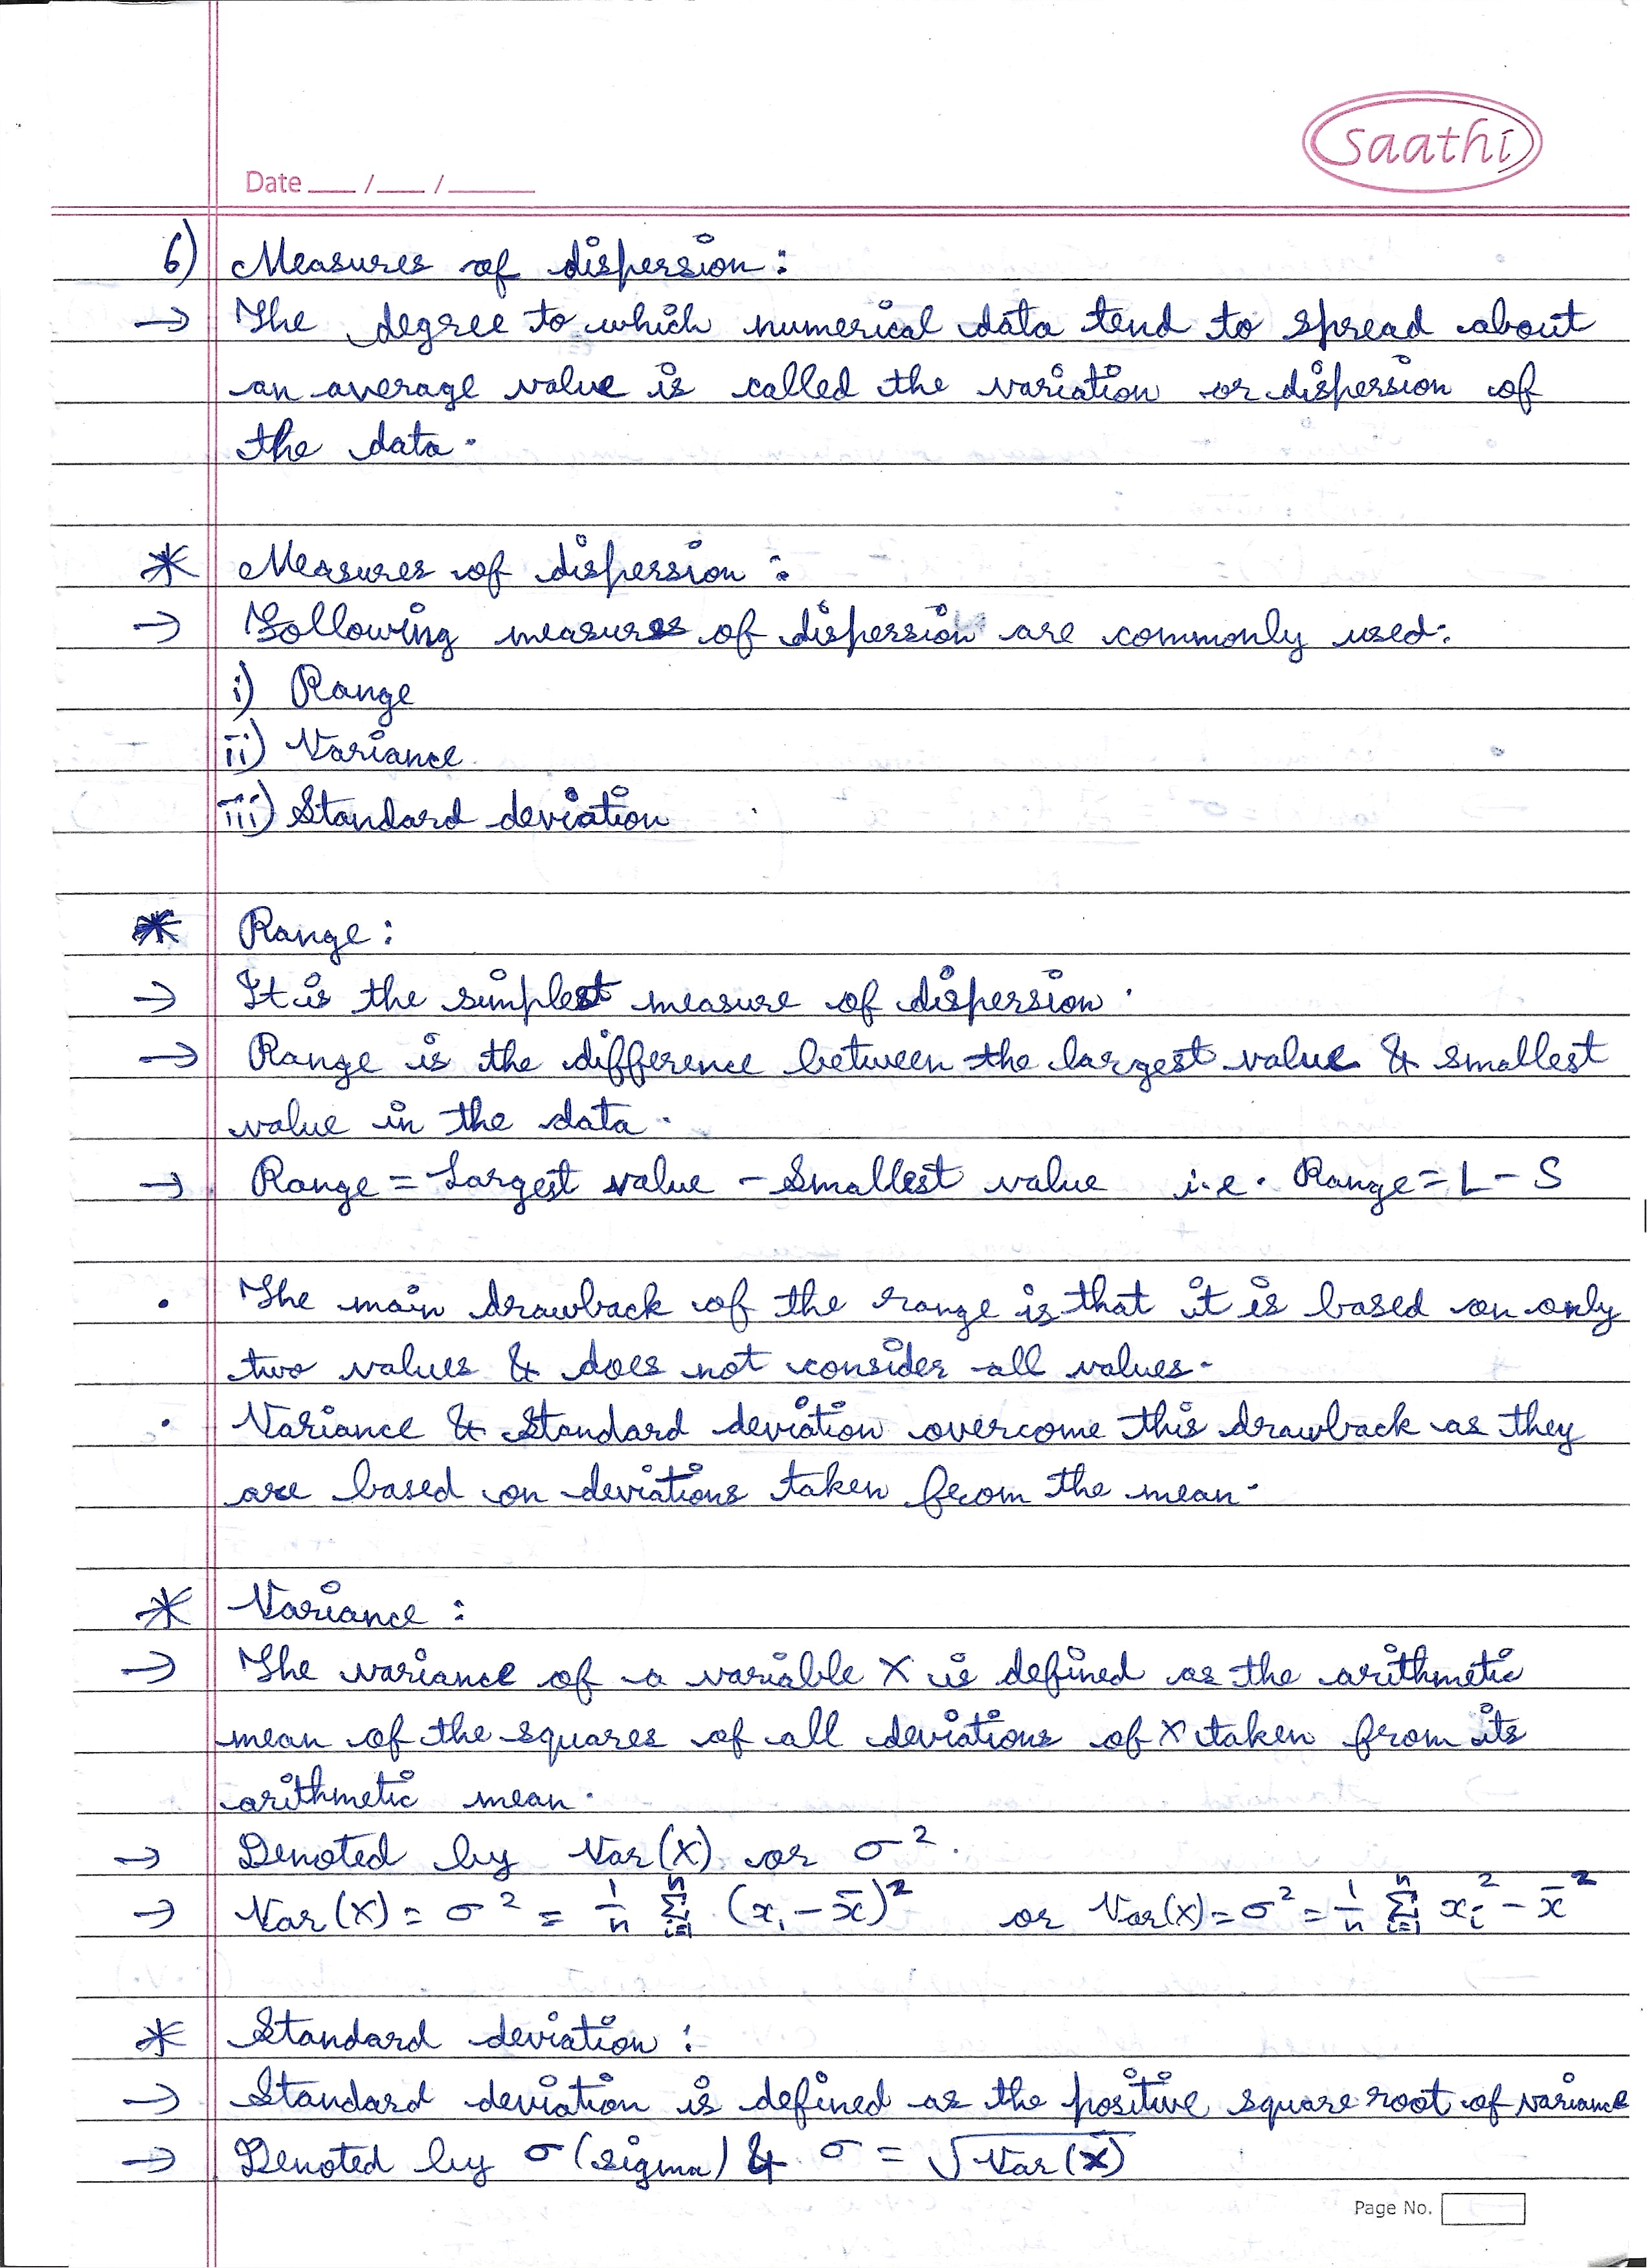 saathi
Date ___ / ___ / ______
6) Measures of dispersion :
→ The degree to which numerical data tend to spread about
an average value is called the variation or dispersion of
the data.
* Measures of dispersion :
→ Following measures of dispersion are commonly used:
i) Range
ii) Variance
iii) Standard deviation
* Range :
→ It is the simplest measure of dispersion.
→ Range is the difference between the largest value & smallest
value in the data.
→ Range = Largest value - Smallest value i.e. Range = L - S
• The main drawback of the range is that it is based on only
two values & does not consider all values.
• Variance & Standard deviation overcome this drawback as they
are based on deviations taken from the mean.
* Variance :
→ The variance of a variable X is defined as the arithmetic
mean of the squares of all deviations of X taken from its
arithmetic mean.
→ Denoted by Var(X) or σ².
→ Var(X) = σ² = 1/n Σ_{i=1}^{n} (xᵢ - x̄)² or Var(X) = σ² = 1/n Σ_{i=1}^{n} xᵢ² - x̄²
* Standard deviation :
→ Standard deviation is defined as the positive square root of variance
→ Denoted by σ (sigma) & σ = √Var(X)
Page No.